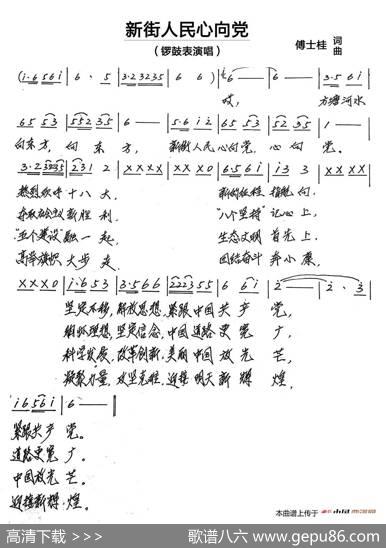 新街人民心向党
（锣鼓表演唱）
傅士桂 词曲
(i·6 56i | 6 · 5 | 3·2 3235 | 6 6) | 6 — | 6 — | 3·5 6i |
哎， 方塘河水
65 53 | 552 35 | 6 — | 5·6 i2 | 65 53 | 52 35 | 1 — |
向东方， 向东方， 新街人民心向党， 心向党。
3·2 | 231 2 | XX XX | XX X0 | 6·56i | i3 3 | XX XX |
热烈欢呼十八大， 新的征程指航向，
夺取新胜利， "八个坚持"记心上，
"五个建设"融一起， 生态文明首先上，
高举旗帜大步走， 团结奋斗奔小康，
XX X0 | i·6 53 | 3·5 66 | 2235 5 | 6·5 6i | 2 — | 2 · 3 |
坚定不移，解放思想，紧跟中国共产党，
理想，坚定信念，中国道路更宽广，
科学发展，改革创新，美丽中国放光芒，
凝聚力量，攻坚克难，迎接明天新辉煌，
i6 56i | 6 — ‖
紧跟共产党。
道路更宽广。
中国放光芒。
迎接新辉煌。
本曲谱上传于
高清下载 >>>
歌谱八六 www.gepu86.com